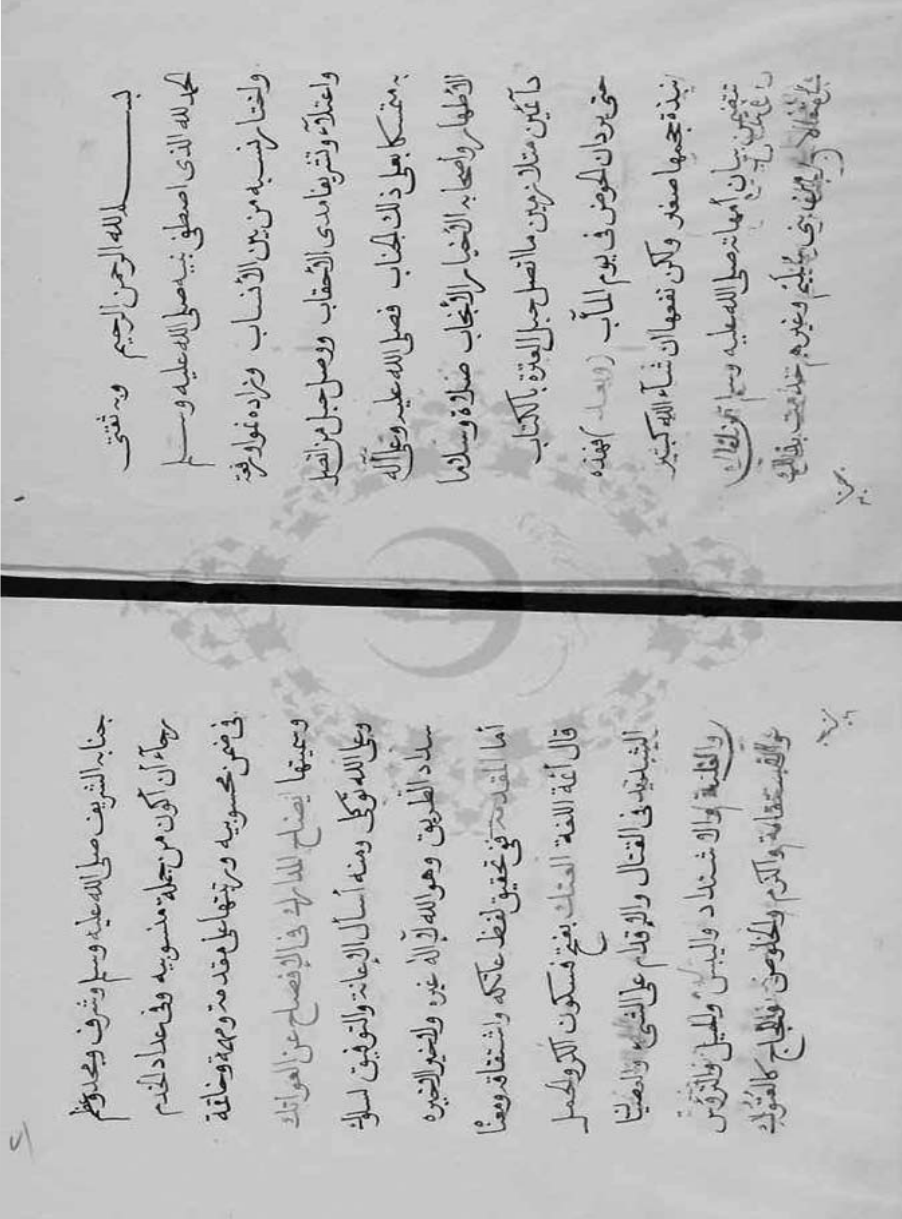 بسم الله الرحمن الرحيم وبه ثقتي
الحمد لله الذى اصطفى نبيه صلى الله عليه وسلم
واختار نسبه من بين الأنساب وزاده نموا ورفعة
واعتلاء وتشريفا مدى الأحقاب ووصل حبل من اتصل
به متمسكا بعلى ذلك الجناب فصلى الله عليه وعلى آله
الأطهار وأصحابه الأخيار الأنجاب صلاة وسلاما
دائمين متلازمين ما اتصل حبل العترة بالكتاب
حتى يردان الحوض فى يوم المآب (وبعد) فهذه
نبذة حجمها صغير ولكن نفعها ان شاء الله كبير
تتضمن بيان أمهاته صلى الله عليه وسلم
بنى سليم وغيرهم خدمت بذلك
جنابه الشريف صلى الله عليه وسلم وشرف ومجد وعظم
رجاء أن أكون من جملة منسوبيه وفى عداد الخدم
فى ضمن محسوبيه ورتبتها على مقدمة ومهمة وخاتمة
وسميتها ايضاح المدارك فى الإفصاح عن العواتك
وعلى الله توكلى ومنه أسأل الإعانة والتوفيق لسلوك
سداد الطريق وهو الله لا إله غيره ولا خير إلا خيره
أما المقدمة ففى تحقيق لفظ عاتكه واشتقاقه ومعناه
قال أئمة اللغة العتك بفتح فسكون الكر والحمل
الشديد فى القتال والإقدام على الشئ والعصيان
والغلبة والاشتداد واليبس والميل
والاستقامة والكرم والخلوص واللجاج كالعتوك